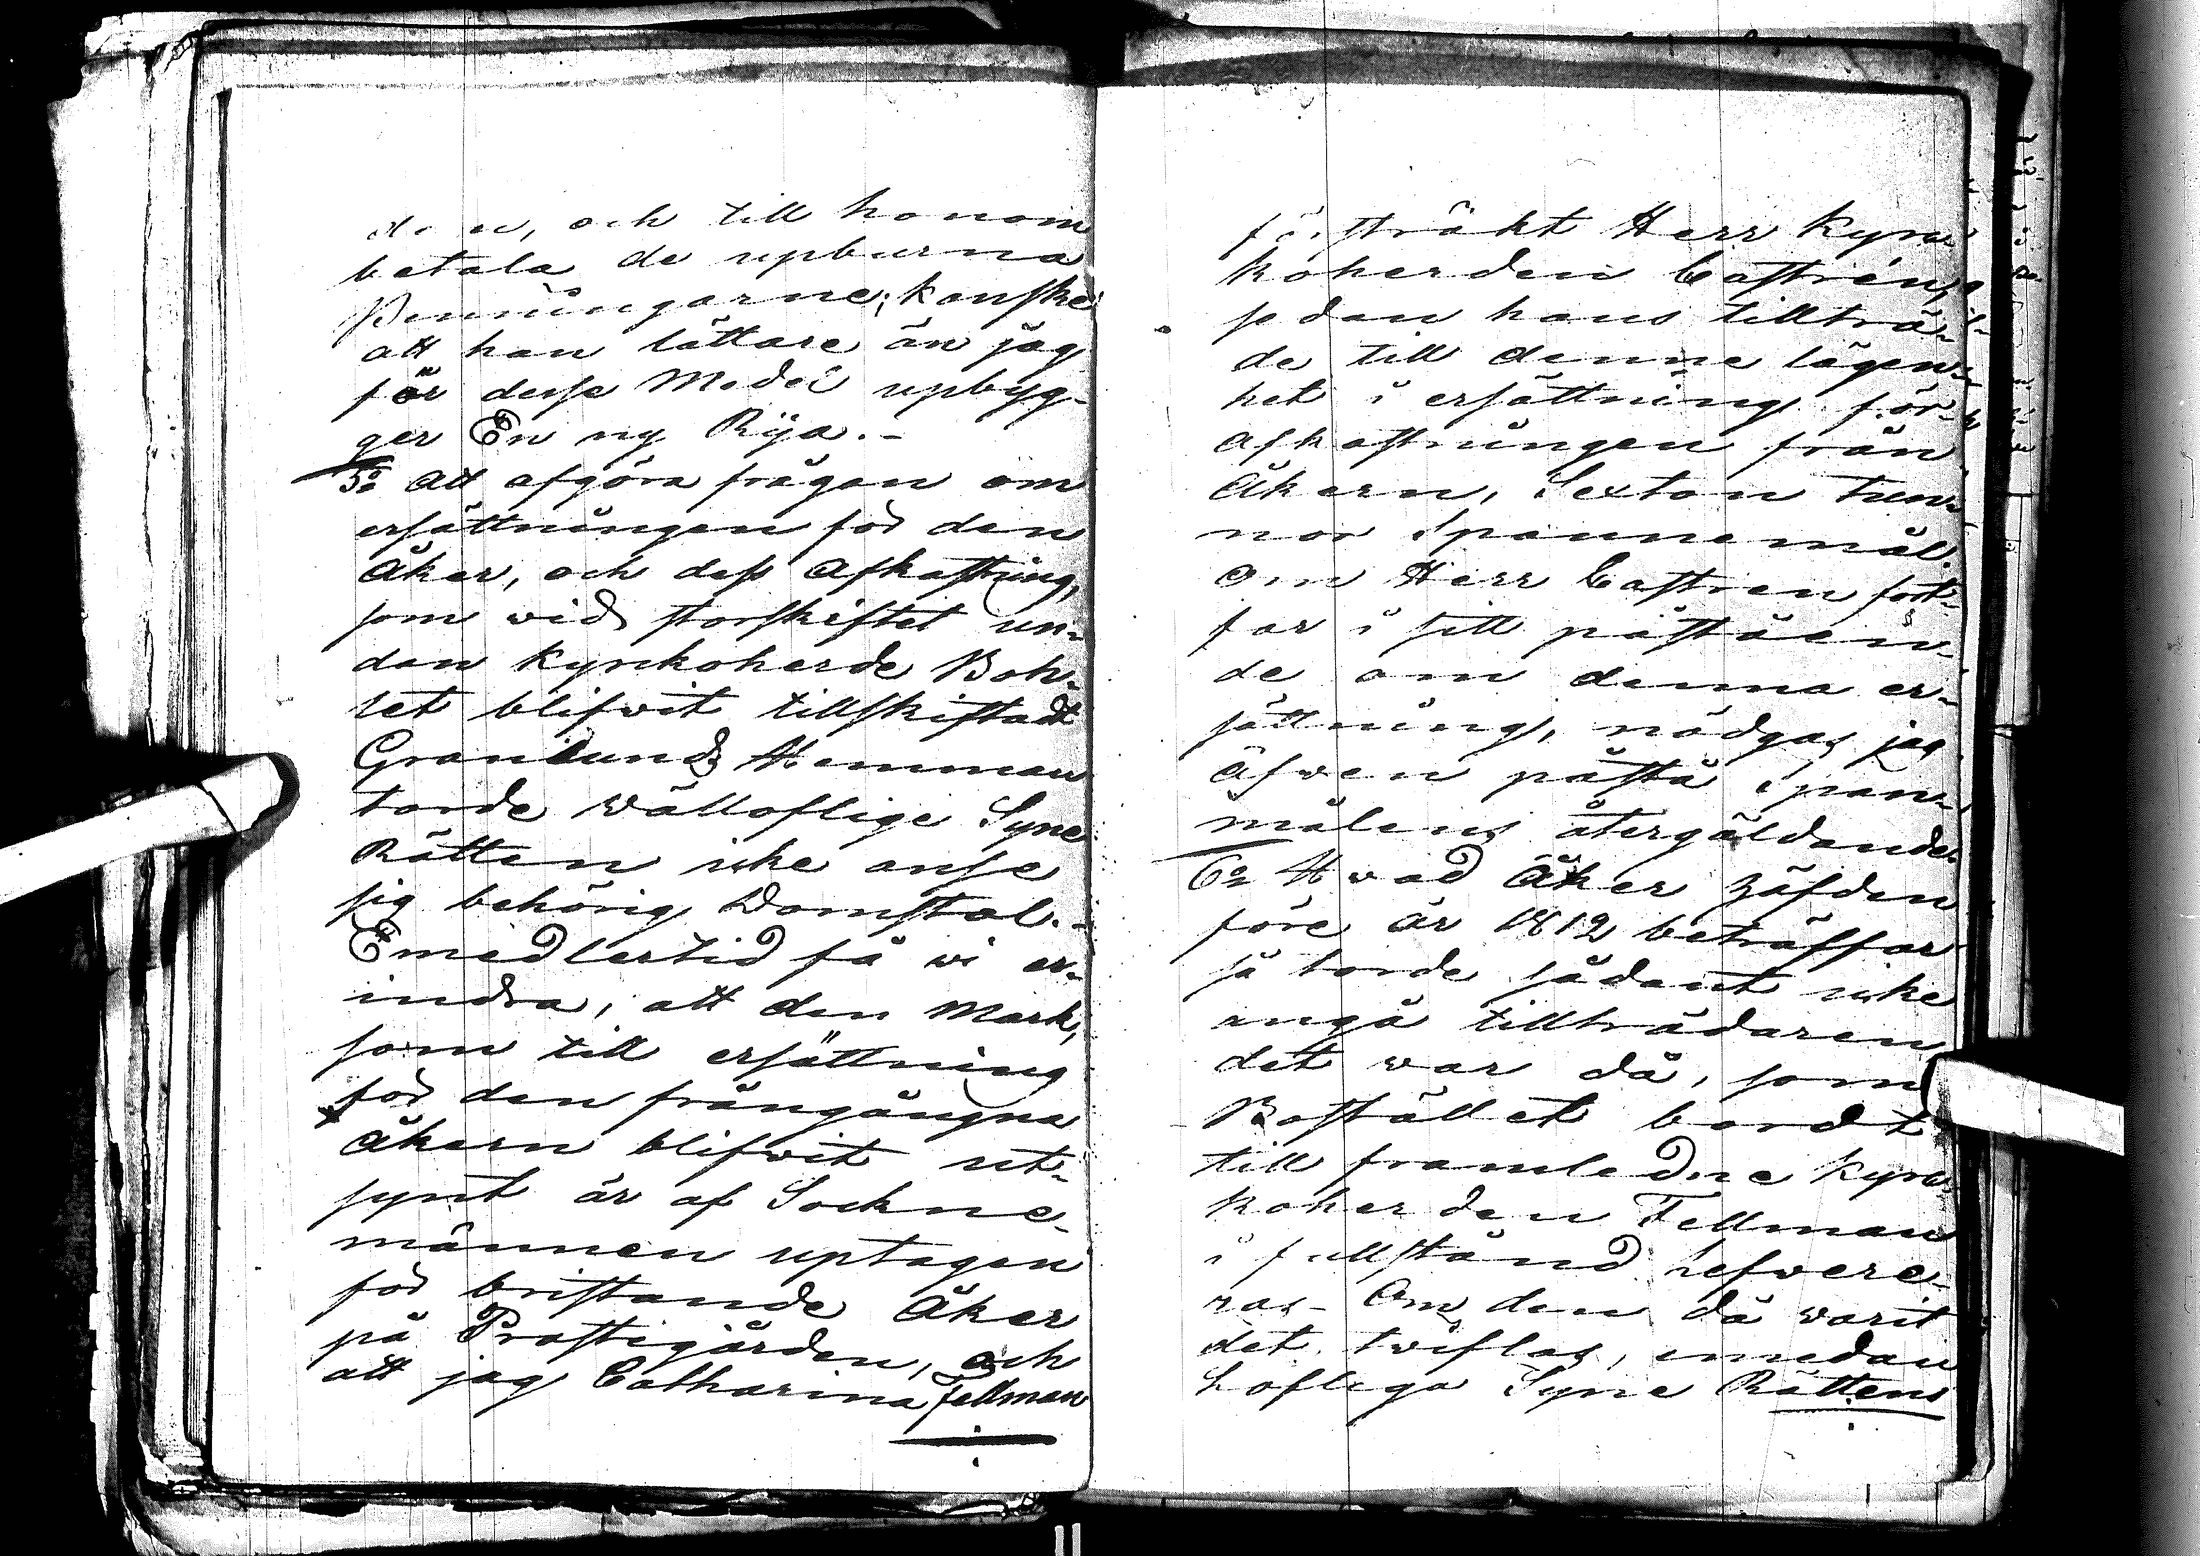 den, och till honom
betala de upburna
Penningarne; kanske
att han lättare än jag
för desse Medel upbyg-
ger En ny Rija.-
5o Att afgöra frågan om
ersättningen för den
Åker, och dess Afkastning,
som wid storskiftet un-
dan Kyrckoherde Boh-
let blifwit tillskiftadt
Granlunds Hemman
torde Wälloflige Syne
Rätten icke anse
sig behörig Domstol.-
Emedlertid få wi er-
indra, att den Mark,
som till ersättning
för den frångångna
Åkern blifwit ut-
synt är af Sockne-
männen uptagen
för bristande Åker
på Prostigården, och
att jag Catharina Fellman
försträkt Herr Kyrc-
koherden Castrén,
sedan hans tillträ-
de till denne lägen-
het i ersättning för
Afkastningen från
Åkern, Sexton tun-
nor Spannemål.
Om Herr Castren fort-
far i sitt påståen-
de om denna er-
sättning, nödgas jag
äfwen påstå span-
målens återgäldande.
6o Hwad Åker häfden
före år 1812 beträffar
så torde sådant icke
angå tillträdaren
det war då, som
Bostället bordt
till framledne Kyrc-
koherden Fellman
i fullstånd lefwere-
ras- Om den då warit
det, twiflas, emedan
Lofliga Syne Rättens